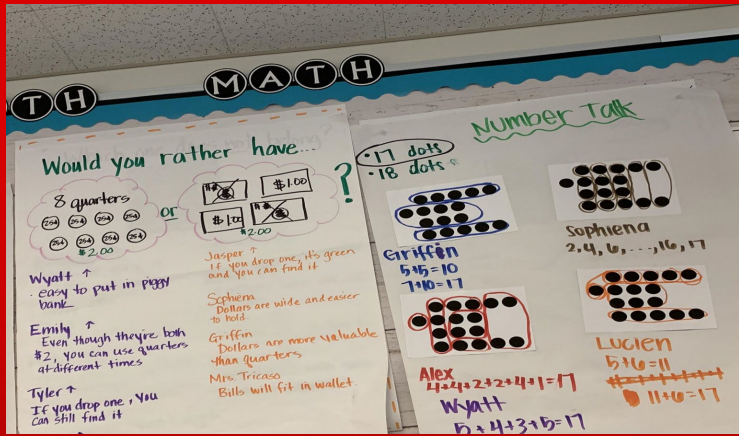 TH
MATH
Would you rather have...
8 quarters
25¢ 25¢ 25¢ 25¢
25¢ 25¢ 25¢ 25¢
$2.00
or
$1.00
$1.00
$2.00
?
Wyatt ↑
· easy to put in piggy
bank
Emily ↑
Even though they're both
$2, you can use quarters
at different times
Tyler ↑
If you drop one, you
can still find it
Jasper ↑
If you drop one, it's green
and you can find it
Sophiena
Dollars are wide and easier
to hold.
Griffin
Dollars are more valuable
than quarters
Mrs. Tricaso
Bills will fit in wallet.
Number Talk
· 17 dots
· 18 dots
Griffin
5+5=10
7+10=17
Sophiena
2,4,6,...,16,17
Alex
4+4+2+2+4+1=17
Wyatt
5+4+3+5=17
Lucien
5+6=11
11+6=17